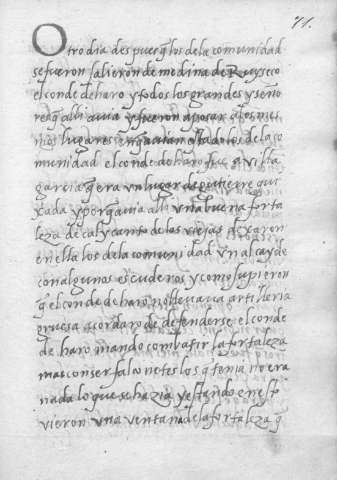 71.
Otro dia despues q̃ los de la comunidad
se fueron salieron de medina de Ruyseco
el conde de haro y todos los grandes y seño
res q̃ alli avia y fueron a posar a los mis
mos lugares en q̃ avian estado los de la co
munidad el conde de haro fue a villa
garcia q̃ era un lugar de gutierre qui
xada y porq̃ avia alli una buena forta
leza de cal y canto de las viejas dexaron
en ella los de la comunidad un alcayde
con algunos escuderos y como supieron
q̃ el conde de haro no llevava artilleria
gruesa acordarõ de defenderse el conde
de haro mando combatir la fortaleza
mas con ser falconetes los q̃ tenia no era
nada lo que se hazia y estando en esto
vieron una ventana de la fortaleza q̃